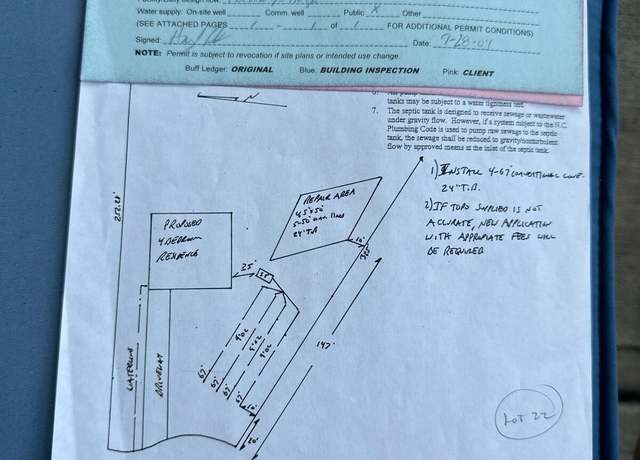 Water supply: On-site well Comm. well Public X Other
(SEE ATTACHED PAGES 1 - 1 of 1 FOR ADDITIONAL PERMIT CONDITIONS)
Signed Date: 9-28-04
NOTE: Permit is subject to revocation if site plans or intended use change.
Buff Ledger: ORIGINAL Blue: BUILDING INSPECTION Pink: CLIENT
N
tanks may be subject to a water tightness test.
7. The septic tank is designed to receive sewage or wastewater
under gravity flow. However, if a system subject to the N.C.
Plumbing Code is used to pump raw sewage to the septic
tank, the sewage shall be reduced to gravity/nonturbulent
flow by approved means at the inlet of the septic tank.
1) INSTALL 4-67' CONVENTIONAL LINE.
24" T.B.
2) IF TOPO SUPPLIED IS NOT
ACCURATE, NEW APPLICATION
WITH APPROPIATE FEES WILL
BE REQUIRED
REPAIR AREA
45'x50'
24" T.B
PROPOSED
4 BEDROOM
RESIDENCE
25'
10'
9'OC
9'OC
9'OC
67'
67'
67'
67'
147'
10'
20'
WATERLINE
DRIVEWAY
LOT 22